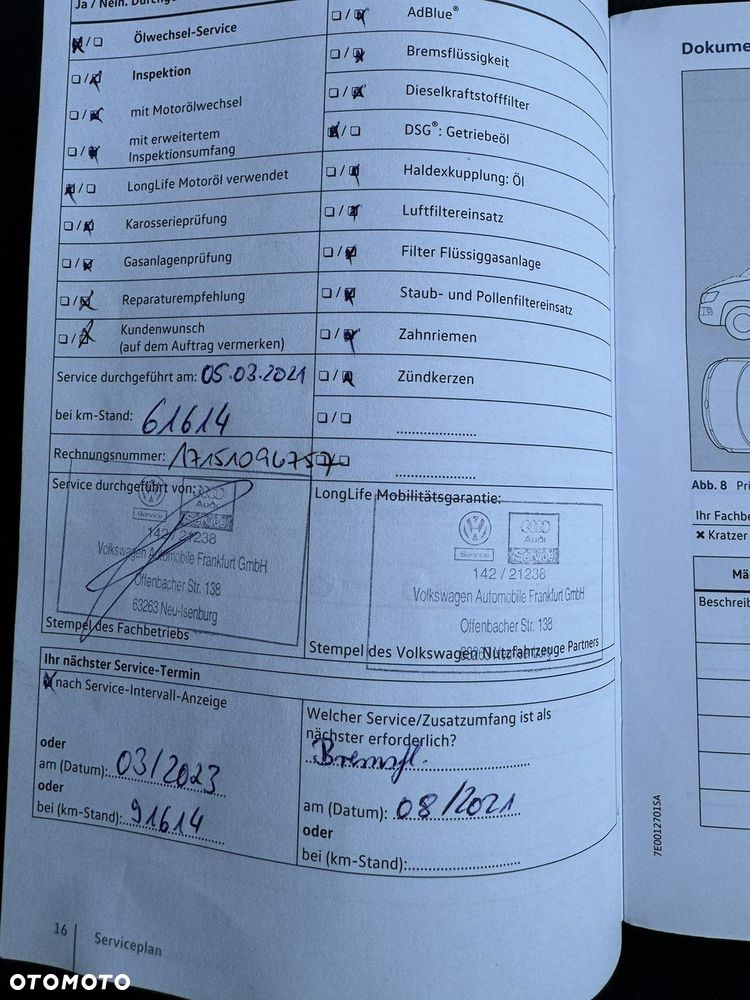 Ja / Nein.
Ölwechsel-Service
Inspektion
mit Motorölwechsel
mit erweitertem
Inspektionsumfang
LongLife Motoröl verwendet
Karosserieprüfung
Gasanlagenprüfung
Reparaturempfehlung
Kundenwunsch
(auf dem Auftrag vermerken)
Service durchgeführt am: 05.03.2021
bei km-Stand: 61614
Rechnungsnummer:
Service durchgeführt von:
Service
Audi
Service
142 / 21238
Volkswagen Automobile Frankfurt GmbH
Offenbacher Str. 138
63263 Neu-Isenburg
Stempel des Fachbetriebs
AdBlue®
Bremsflüssigkeit
Dieselkraftstofffilter
DSG®: Getriebeöl
Haldexkupplung: Öl
Luftfiltereinsatz
Filter Flüssiggasanlage
Staub- und Pollenfiltereinsatz
Zahnriemen
Zündkerzen
LongLife Mobilitätsgarantie:
Service
Audi
Service
142 / 21238
Volkswagen Automobile Frankfurt GmbH
Offenbacher Str. 138
Stempel des Volkswagen Nutzfahrzeuge Partners
Ihr nächster Service-Termin
nach Service-Intervall-Anzeige
oder
am (Datum): 03/2023
oder
bei (km-Stand): 91614
Welcher Service/Zusatzumfang ist als
nächster erforderlich?
Bremsfl.
am (Datum): 08/2021
oder
bei (km-Stand):
16 Serviceplan
Dokume
Abb. 8 Pri
Ihr Fachbe
× Kratzer
Mä
Beschreib
7E0012701SA
OTOMOTO